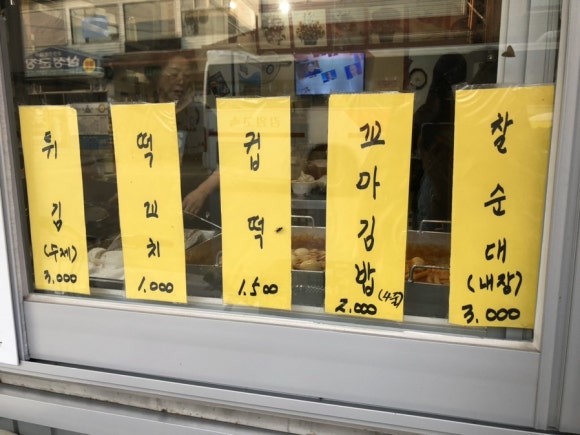 튀김
(수제)
3.000
떡꼬치
1.000
컵떡
1.500
꼬마김밥
(4줄)
2.000
찰순대
(내장)
3.000